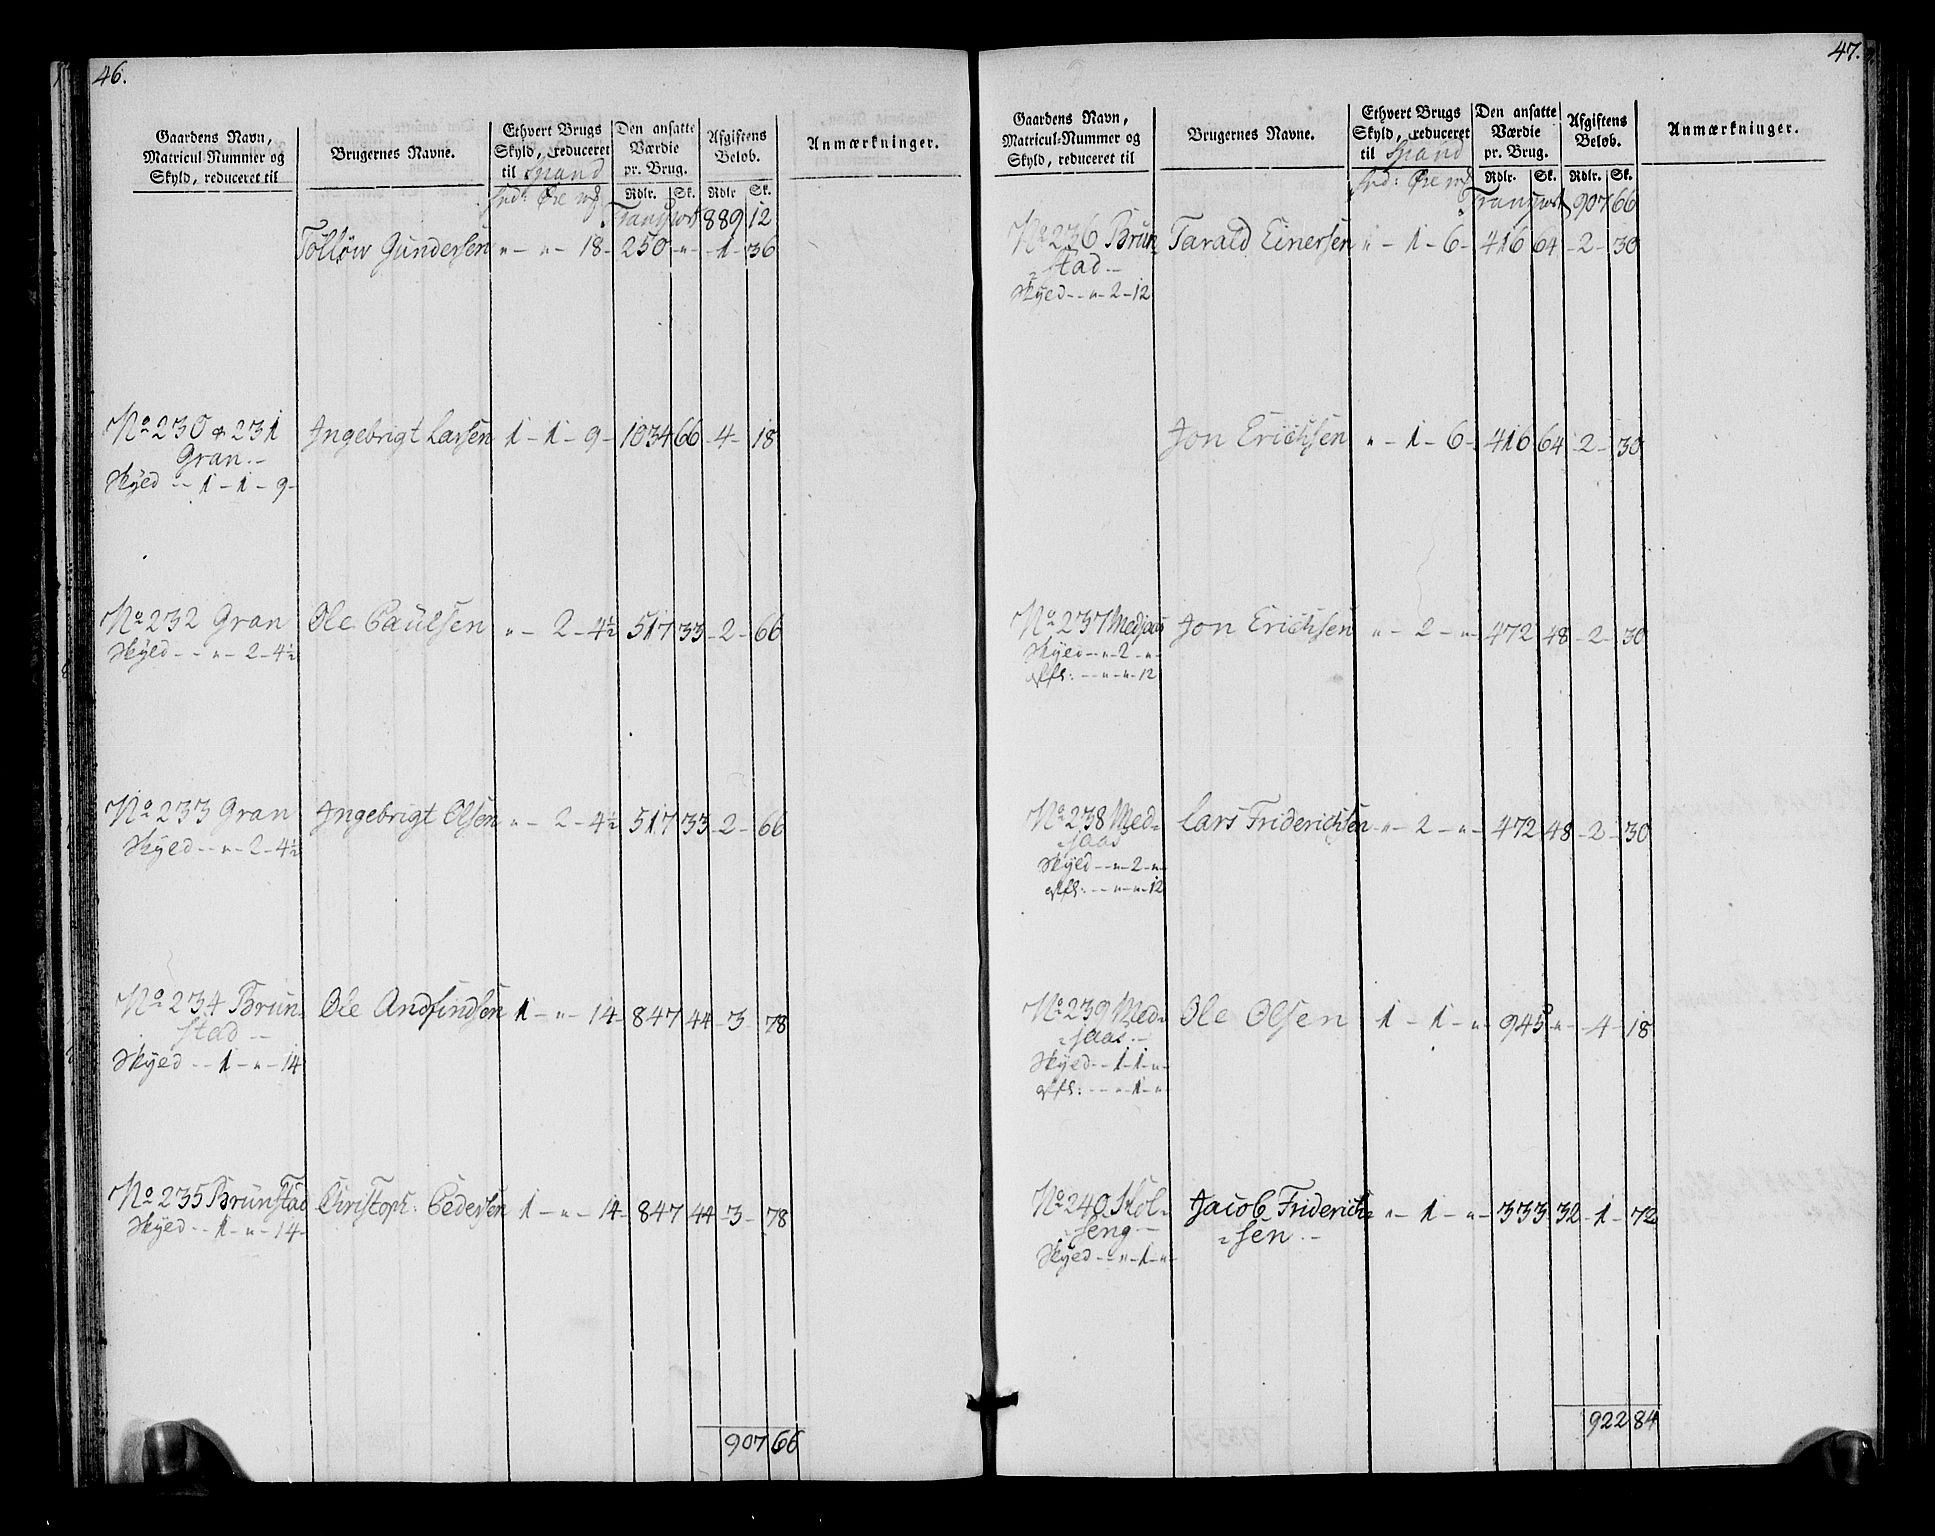 46.
Gaardens Navn, Matricul-Nummer og Skyld, reduceret til
Brugernes Navne.
Ethvert Brugs Skyld, reduceret til Spand
Den ansatte Værdie pr. Brug.
Afgiftens Beløb.
Anmærkninger.
Rdlr. Sk. Rdlr Sk.
Spd: Øre mk
Transport 889 12
Tolløw Gundersen " - " - 18 - 250 - " - 1 - 36
No 230 & 231 Ingebrigt Larsen 1 - 1 - 9 - 1034 66 - 4 - 18
Gran. -
Skyld - - 1 - 1 - 9 -
No 232 Gran Ole Paulsen " - 2 - 4½ 517 33 - 2 - 66
Skyld - - " - 2 - 4½
No 233 Gran Ingebrigt Olsen " - 2 - 4½ 517 33 - 2 - 66
Skyld - - " - 2 - 4½
No 234 Brun- Ole Andfindsen 1 - " - 14 - 847 44 - 3 - 78
stad -
Skyld - - 1 - " - 14
No 235 Brunstad Christoph: Pedersen 1 - " - 14 - 847 44 - 3 - 78
Skyld - - 1 - " - 14 -
907 66
47.
Gaardens Navn, Matricul-Nummer og Skyld, reduceret til
Brugernes Navne.
Ethvert Brugs Skyld, reduceret til Spand
Den ansatte Værdie pr. Brug.
Afgiftens Beløb.
Anmærkninger.
Rdlr. Sk. Rdlr. Sk.
Spd: Øre mk
Transport 907 66
No 236 Brun- Tarald Einersen " - 1 - 6 - 416 64 - 2 - 30
stad -
Skyld - - " - 2 - 12
Jon Erichsen " - 1 - 6 - 416 64 - 2 - 30
No 237 Medjaas Jon Erichsen " - 2 - " - 472 48 - 2 - 30
Skyld - - " - 2 - " -
- - " - " - 12
No 238 Med- Lars Friderichsen " - 2 - " - 472 48 - 2 - 30
jaas
Skyld - - " - 2 - " -
- - " - " - 12
No 239 Med- Ole Olsen 1 - 1 - " - 945 " - 4 - 18
jaas -
Skyld - - 1 - 1 - " -
- - " - 1 - "
No 240 Støl- Jacob Friderich- " - 1 - " - 333 32 - 1 - 72
seng - sen. -
Skyld - - " - 1 - " -
922 84